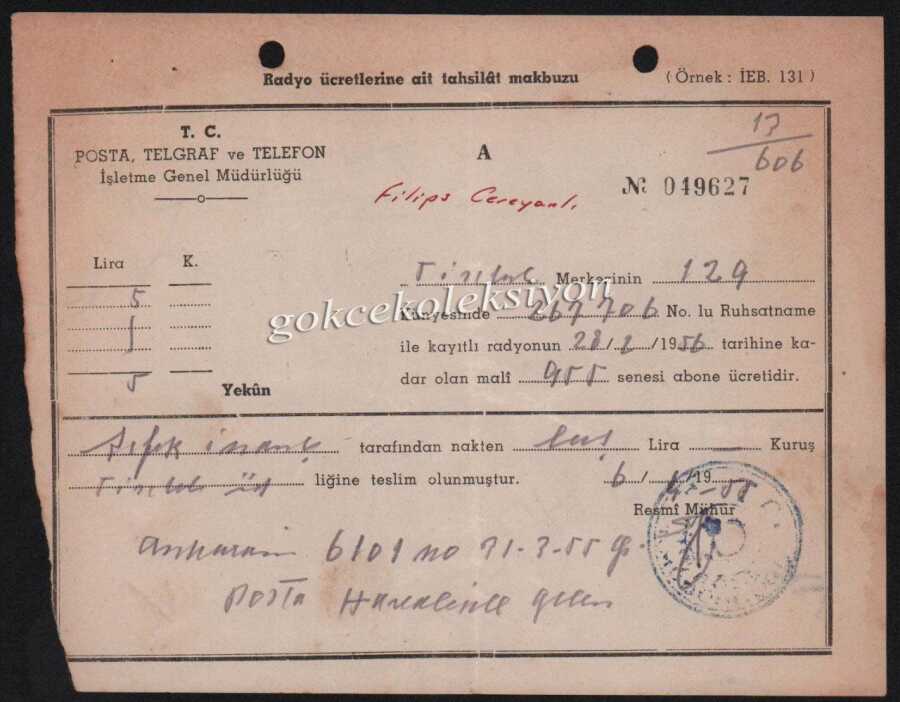 Radyo ücretlerine ait tahsilât makbuzu (Örnek : İEB. 131)
T. C.
POSTA, TELGRAF ve TELEFON
İşletme Genel Müdürlüğü
A
13
606
№ 049627
Filips Cereyanlı
Lira K.
5
5
Yekûn
Merkezinin 129
Künyesinde 267706 No. lu Ruhsatname
ile kayıtlı radyonun 28/2/1956 tarihine ka-
dar olan malî 955 senesi abone ücretidir.
gokcekoleksiyon
tarafından nakten beş Lira Kuruş
liğine teslim olunmuştur. 6/ /19
Resmî Mühür
6101 no 31-3-55
Posta Havalesile gelen